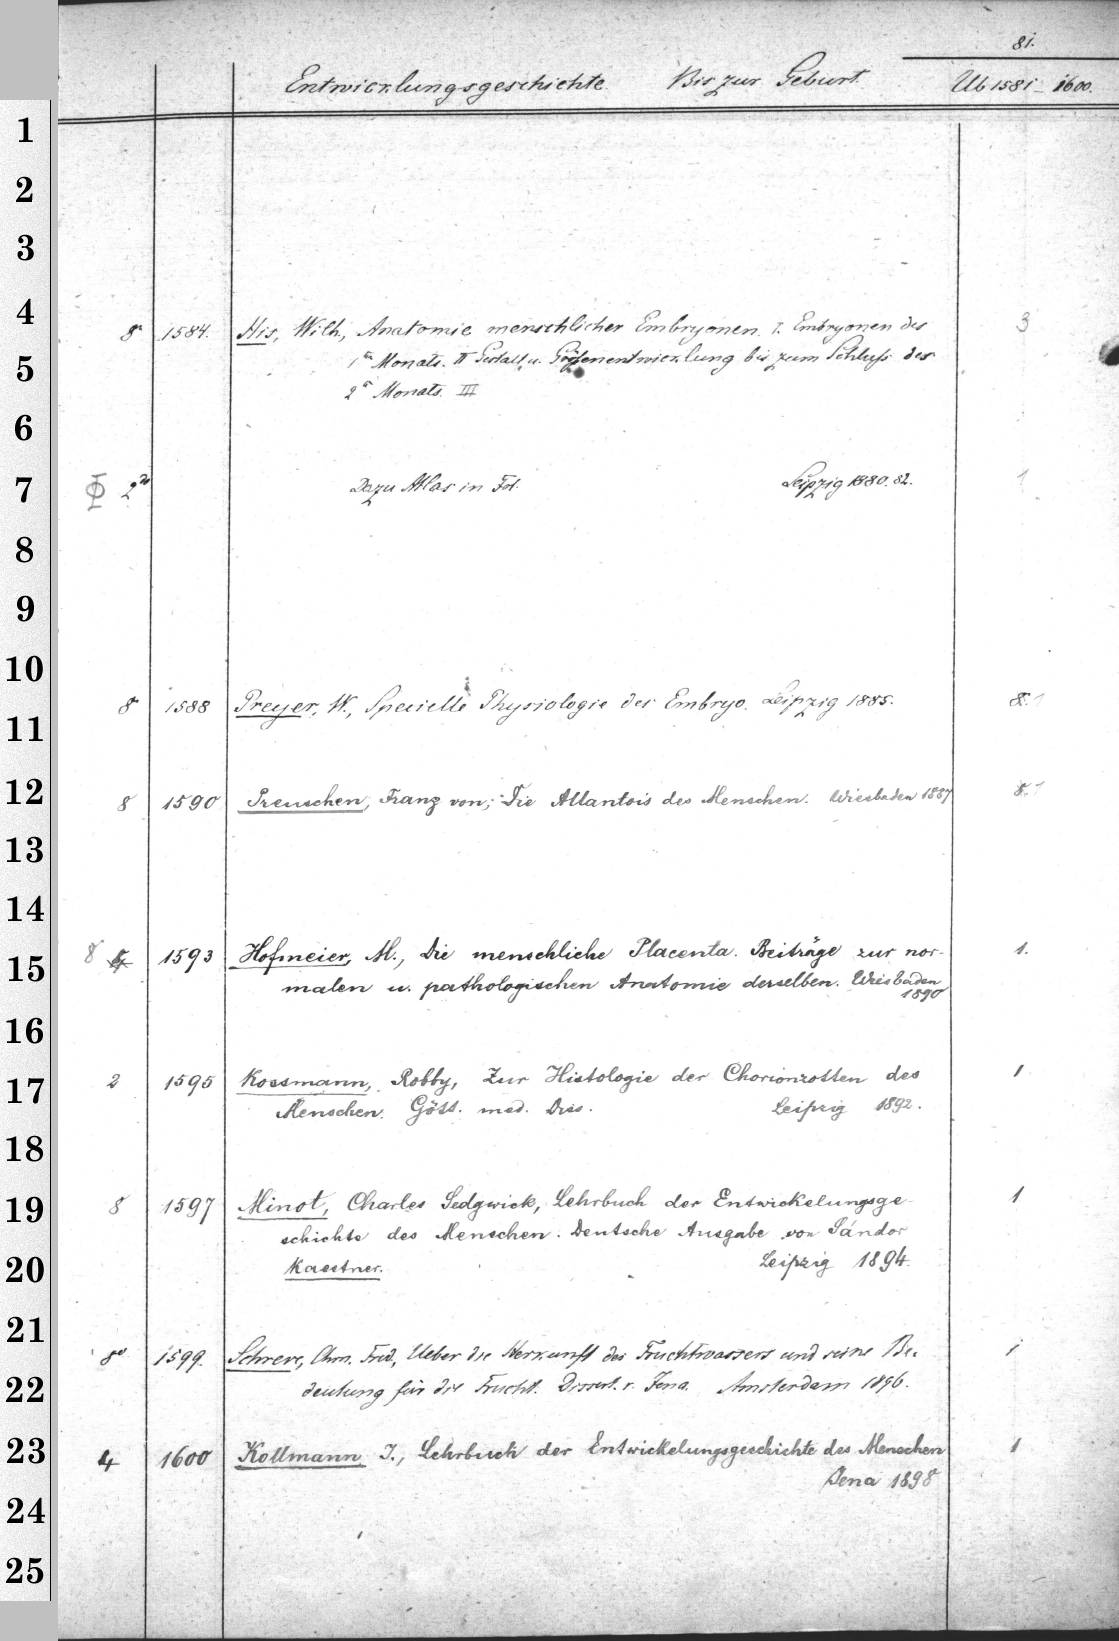 81.
Entwicklungsgeschichte. Bis zur Geburt. Ub 1581 – 1600.
1
2
3
4
8° 1584. His, Wilh., Anatomie menschlicher Embryonen. I. Embryonen des 3
5
1n Monats. II Gestalt u. Größenentwicklung bis zum Schluß des
2n Monats. III
6
7
2° Dazu Atlas in Fol. Leipzig 1880.82. 1
8
9
10
8° 1588 Preyer, W., Specielle Physiologie des Embryo. Leipzig 1885. 8. 1
11
12
8 1590 Preuschen, Franz von, Die Allantois des Menschen. Wiesbaden 1887 8. 1
13
14
8 4 1593 Hofmeier, M., Die menschliche Placenta. Beiträge zur nor- 1.
15
malen u. pathologischen Anatomie derselben. Wiesbaden
1890
16
2 1595 Kossmann, Robby, Zur Histologie der Chorionzotten des 1
17
Menschen. Gött. med. Diss. Leipzig 1892.
18
8 1597 Minot, Charles Sedgwick, Lehrbuch der Entwickelungsge- 1
19
schichte des Menschen. Deutsche Ausgabe von Sándor
20
Kaestner. Leipzig 1894.
21
8° 1599. Schreve, Chrn. Frid., Ueber die Herkunft des Fruchtwassers und seine Be- 1
22
deutung für die Frucht. Dissert. v. Jena. Amsterdam 1896.
23
4 1600 Kollmann J., Lehrbuch der Entwickelungsgeschichte des Menschen 1
Jena 1898
24
25